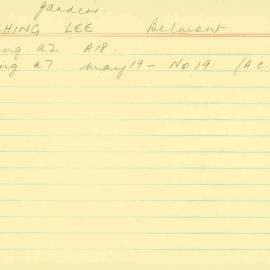 garden
CHING LEE Belmont
ng a2 A18.
ng a7 May 19 - No. 19. (A.C.